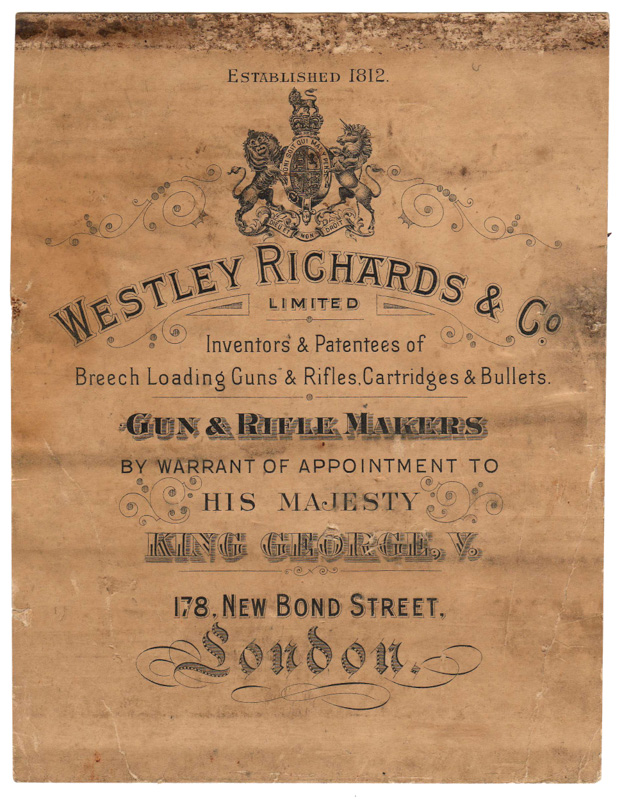 ESTABLISHED 1812.
HONI SOIT QUI MAL Y PENSE
DIEU ET MON DROIT
WESTLEY RICHARDS & Co
LIMITED
Inventors & Patentees of
Breech Loading Guns & Rifles, Cartridges & Bullets.
GUN & RIFLE MAKERS
BY WARRANT OF APPOINTMENT TO
HIS MAJESTY
KING GEORGE, V.
178, NEW BOND STREET,
London.